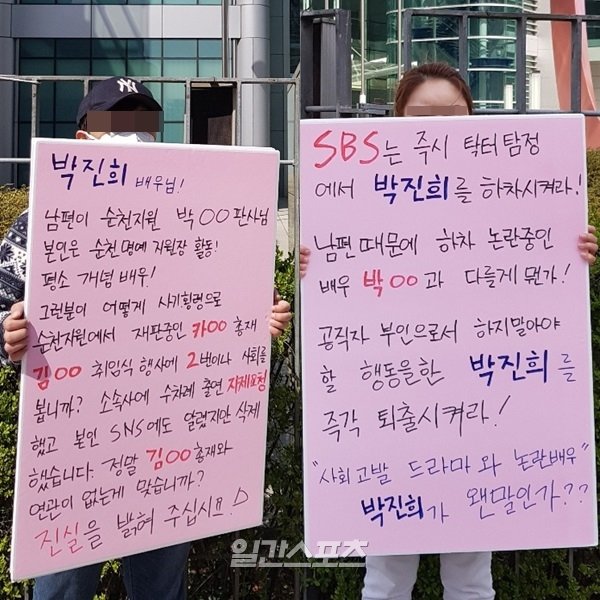 NY
박진희 배우님!
남편이 순천지원 박OO판사님
본인은 순천명예 지원장 활동!
평소 개념 배우!
그런분이 어떻게 사기횡령으로
순천지원에서 재판중인 카OO 총재
김OO 취임식 행사에 2번이나 사회를
봅니까? 소속사에 수차례 출연 자제요청
했고 본인 SNS에도 알렸지만 삭제
했습니다. 정말 김OO총재와
연관이 없는게 맞습니까?
진실을 밝혀 주십시요!
SBS는 즉시 닥터탐정
에서 박진희를 하차시켜라!
남편때문에 하차 논란중인
배우 박OO과 다를게 뭔가!
공직자 부인으로서 하지말아야
할 행동을한 박진희를
즉각 퇴출시켜라!
"사회고발 드라마와 논란배우"
박진희가 왠말인가??
일간스포츠